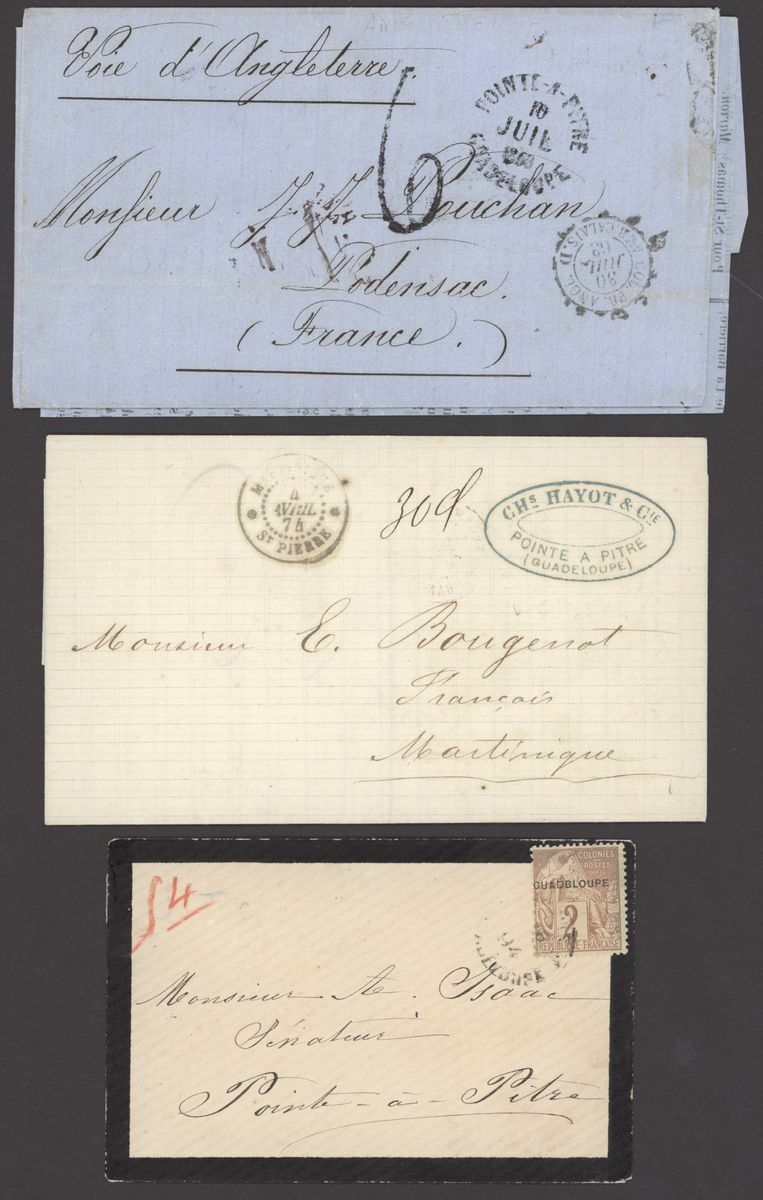 Voie d'Angleterre
6
POINTE-A-PITRE
10
JUIL
GUADELOUPE
Monsieur J. J. Pouchan
Podensac.
(France.)
30
JUIL
CALAIS. D
Pour St-Thomas
MARTINIQUE
4
AVRIL
74
ST PIERRE
30d
CHs HAYOT & CIE
POINTE A PITRE
(GUADELOUPE)
Monsieur E. Bougenot
François
Martinique
54
COLONIES
POSTES
GUADBLOUPE
2
REPUBLIQUE FRANCAISE
94
Monsieur A. Isaac
Sénateur
Pointe-à-Pitre